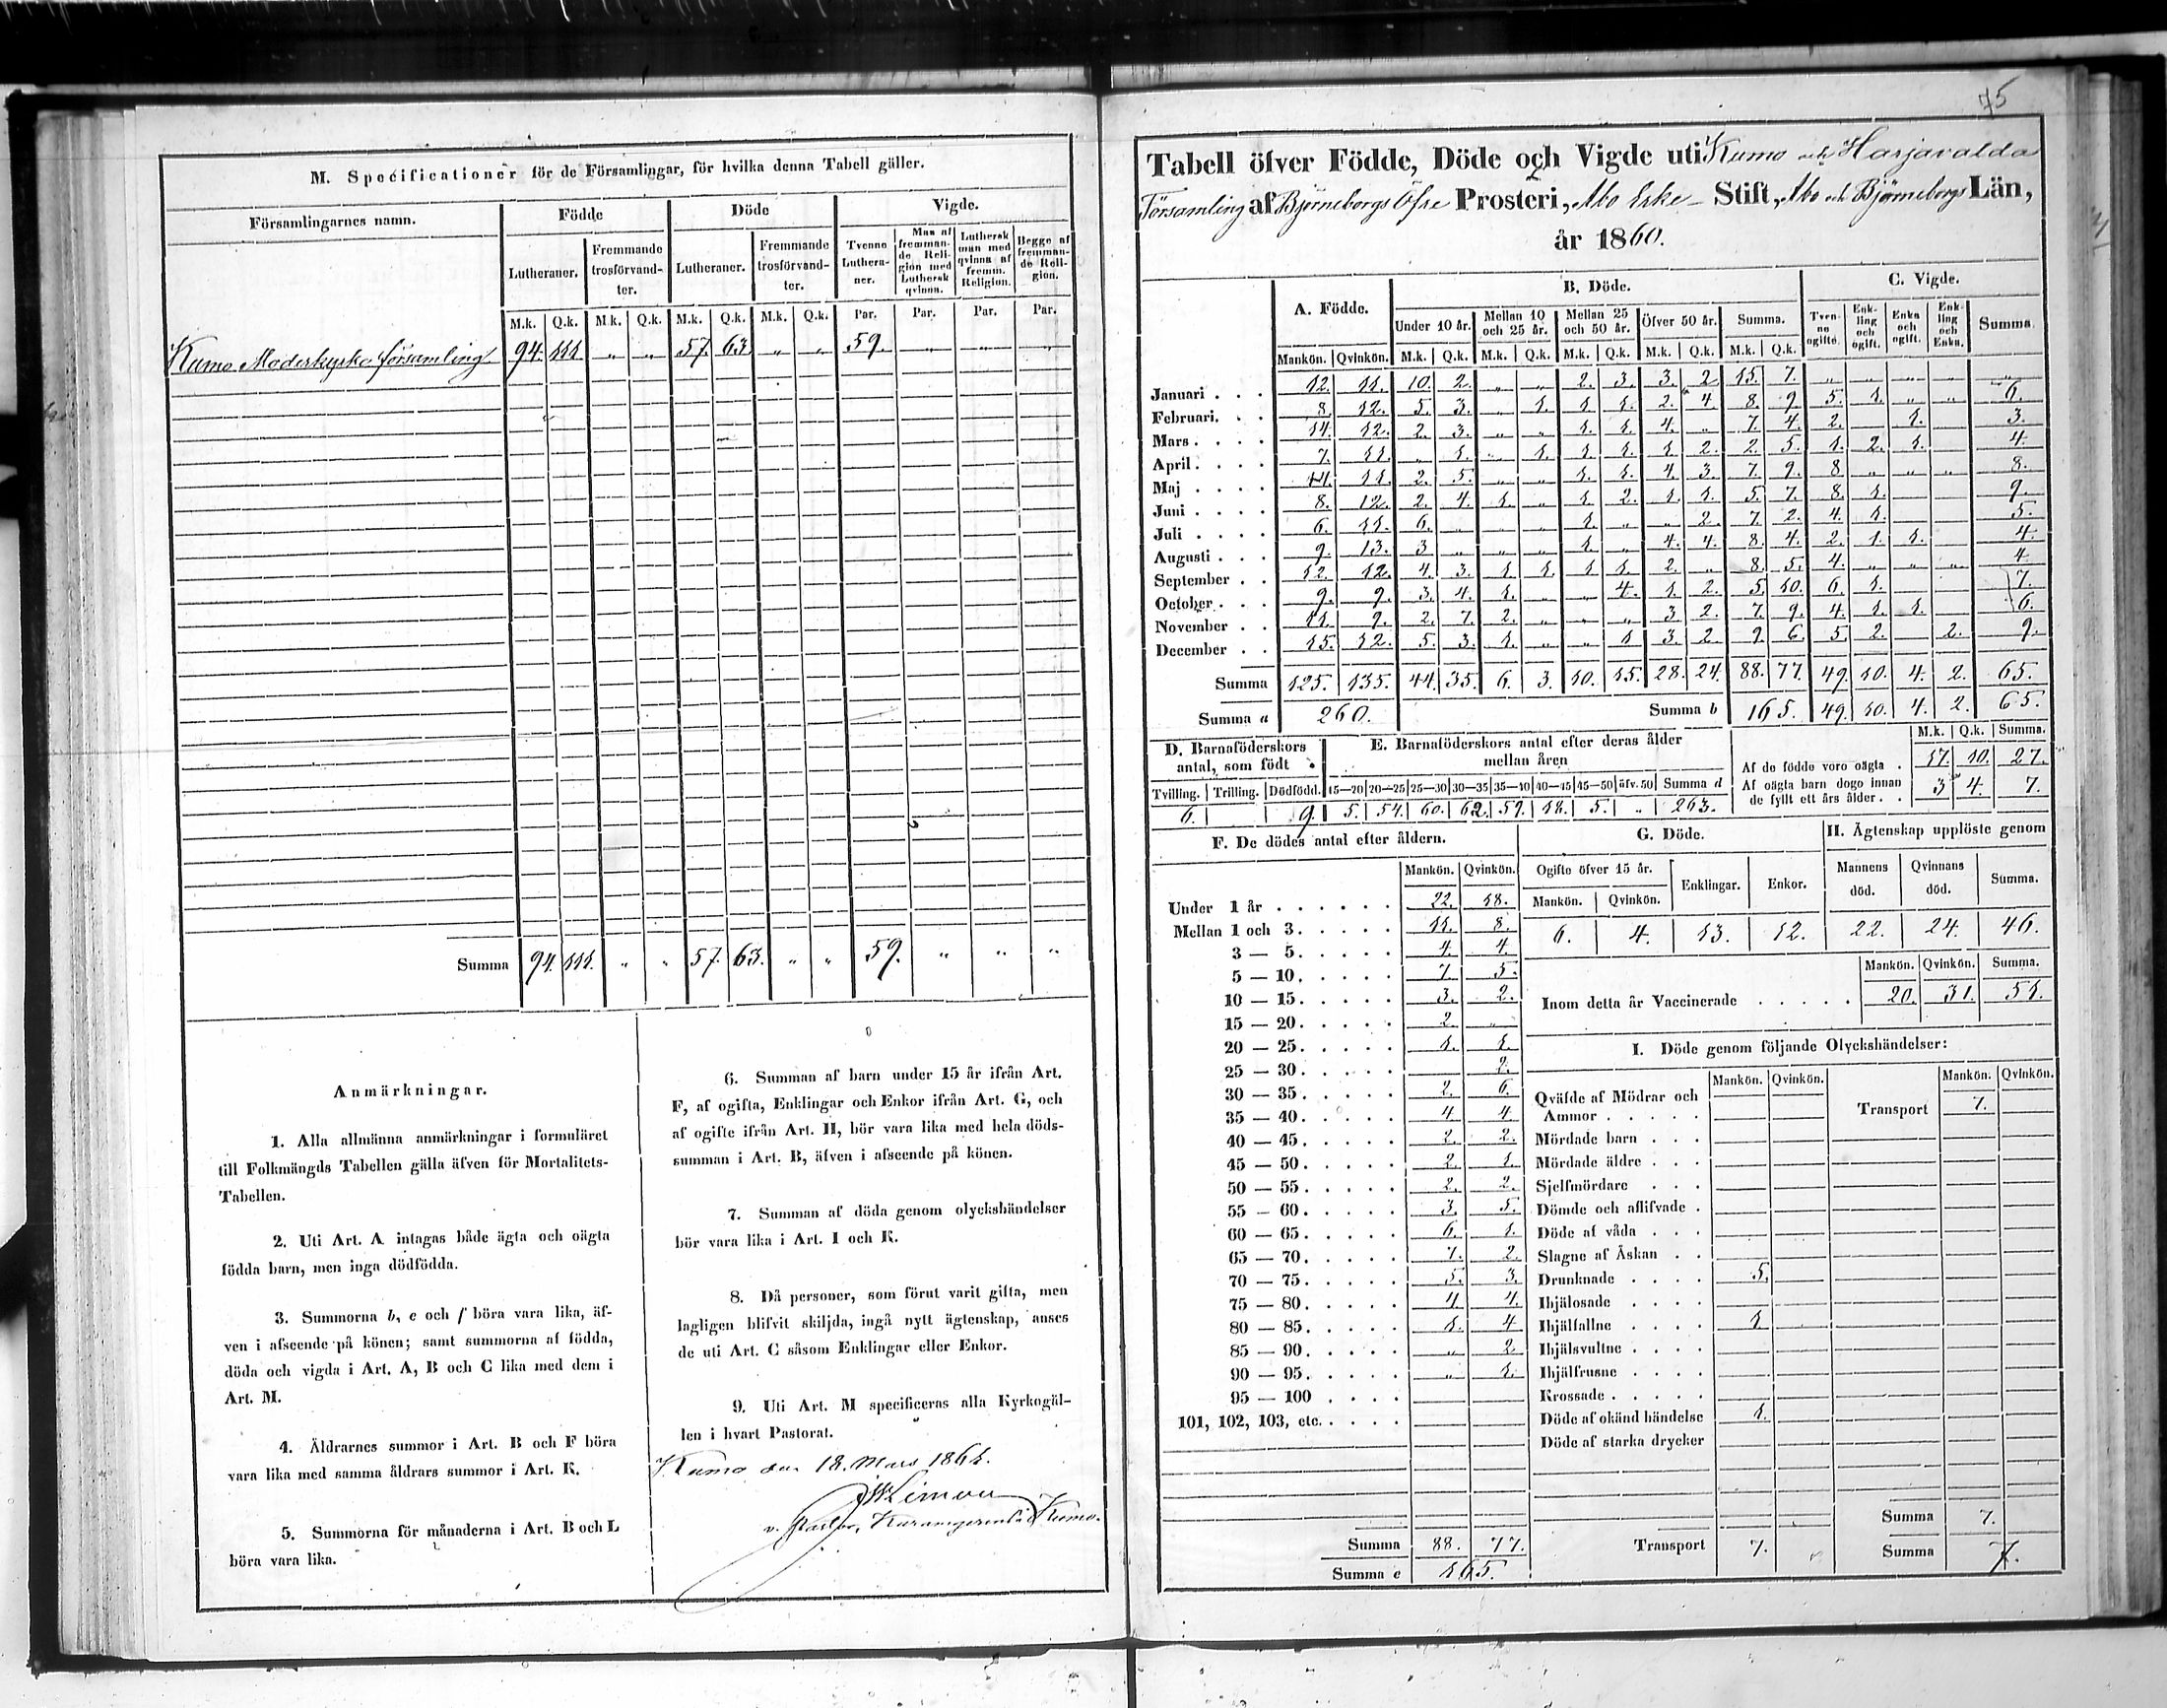 M. Specificationer för de Församlingar, för hvilka denna Tabell gäller.
Församlingarnes namn. Födde Döde Vigde.
Lutheraner. Fremmande trosförvandter. Lutheraner. Fremmande trosförvandter. Tvenne Lutheraner. Man af fremmande Religion med Luthersk qvinna. Luthersk man med qvinna af fremm. Religion. Begge af fremmande Religion.
M.k. Q.k. M.k. Q.k. M.k. Q.k. M.k. Q.k. Par. Par. Par. Par.
Kumo Moderkyrko församling 94. 111. „ „ 57. 63 „ „ 59. „ „ „
Summa 94. 111. „ „ 57. 63. „ „ 59. „ „ „
Anmärkningar.
1. Alla allmänna anmärkningar i formuläret
till Folkmängds Tabellen gälla äfven för Mortalitets-
Tabellen.
2. Uti Art. A intagas både ägta och oägta
födda barn, men inga dödfödda.
3. Summorna b, e och f böra vara lika, äf-
ven i afseende på könen; samt summorna af födda,
döda och vigda i Art. A, B och C lika med dem i
Art. M.
4. Åldrarnes summor i Art. B och F böra
vara lika med samma åldrars summor i Art. K.
5. Summorna för månaderna i Art. B och L
böra vara lika.
6. Summan af barn under 15 år ifrån Art.
F, af ogifta, Enklingar och Enkor ifrån Art. G, och
af ogifte ifrån Art. H, bör vara lika med hela döds-
summan i Art. B, äfven i afseende på könen.
7. Summan af döda genom olyckshändelser
bör vara lika i Art. I och K.
8. Då personer, som förut varit gifta, men
lagligen blifvit skiljda, ingå nytt ägtenskap, anses
de uti Art. C såsom Enklingar eller Enkor.
9. Uti Art. M specificeras alla Kyrkogäl-
len i hvart Pastorat.
Kumo den 18. Mars 1861.
v. Pastor, Kumo.
75
Tabell öfver Födde, Döde och Vigde uti Kumo och Harjavalda
Församling af Björneborgs Öfre Prosteri, Åbo Erke- Stift, Åbo och Björneborgs Län,
år 1860.
A. Födde. B. Döde. C. Vigde.
Under 10 år. Mellan 10 och 25 år. Mellan 25 och 50 år. Öfver 50 år. Summa. Tvenne ogifte. Enkling och ogift. Enka och ogift. Enkling och Enka. Summa.
Mankön. Qvinkön. M.k. Q.k. M.k. Q.k. M.k. Q.k. M.k. Q.k. M.k. Q.k.
Januari . . . 12. 11. 10. 2. „ „ 2. 3. 3. 2 15. 7. „ „ „ „ „
Februari. . . 8. 12. 5. 3. „ 1. 1. 1. 2. 4. 8. 9. 5. 1. „ „ 6.
Mars . . . . 14. 12. 2. 3. „ „ 1. 1. 4. „ 7. 4. 2. 1. 3.
April . . . . 7. 11. „ 1. „ 1. 1. 1. 1. 2 2. 5. 1. 2. 1. 4.
Maj . . . . 14. 11. 2. 5. „ „ 1. 1. 4. 3. 7. 9. 8 „ „ „ 8.
Juni . . . . 8. 12. 2. 4. 1. „ 1. 2. 1. 1. 5. 7. 8. 1. 9.
Juli . . . . 6. 11. 6. „ „ „ 1. „ „ 2. 7. 2. 4. 1. 5.
Augusti . . . 9. 13. 3 „ „ „ 1. „ 4. 4. 8. 4. 2. 1. 1. 4.
September . . 12. 12. 4. 3. 1. 1. 1. 1. 2. „ 8. 5. 4. „ „ „ 4.
October . . . 9. 9. 3. 4. 1. „ „ 4. 1. 2. 5. 10. 6. 1. 7.
November . . 11. 9. 2. 7. 2. „ „ „ 3. 2. 7. 9. 4. 1. 1. 6.
December . . 15. 12. 5. 3. 1. „ „ 1 3. 2. 9 6. 5. 2. 2. 9.
Summa 125. 135. 44. 35. 6. 3. 10. 15. 28. 24. 88. 77. 49. 10. 4. 2. 65.
Summa a 260. Summa b 165. 49. 10. 4. 2. 65.
D. Barnaföderskors antal, som födt E. Barnaföderskors antal efter deras ålder mellan åren
M.k. Q.k. Summa.
Af de födde voro oägta . 17. 10. 27.
Af oägta barn dogo innan de fyllt ett års ålder . . 3 4. 7.
Tvilling. Trilling. Dödfödd. 15—20 20—25 25—30 30—35 35—40 40—45 45—50 öfv. 50 Summa d
6. 9. 5. 54. 60. 62. 59. 18. 5. „ 263.
F. De dödes antal efter åldern.
Mankön. Qvinkön.
Under 1 år . . . . . . 22. 18.
Mellan 1 och 3. . . . . 11. 8.
3 — 5. . . . . 4. 4.
5 — 10. . . . . 7. 5.
10 — 15. . . . . 3. 2.
15 — 20. . . . . 2. „
20 — 25. . . . . 1. 1.
25 — 30. . . . . 2.
30 — 35. . . . . 2. 6.
35 — 40. . . . . 4 4
40 — 45. . . . . 2. 2.
45 — 50. . . . . 2. 1.
50 — 55. . . . . 2. 2.
55 — 60. . . . . 3. 5.
60 — 65. . . . . 6. 1.
65 — 70. . . . . 7. 2.
70 — 75. . . . . 5. 3.
75 — 80. . . . . 4. 4.
80 — 85. . . . . 1. 4
85 — 90. . . . . „ 2
90 — 95. . . . . „ 1.
95 — 100 . . . .
101, 102, 103, etc. . . . .
Summa 88. 77.
Summa e 165.
G. Döde.
Ogifte öfver 15 år. Enklingar. Enkor.
Mankön. Qvinkön.
6. 4. 13. 12.
H. Ägtenskap upplöste genom
Mannens död. Qvinnans död. Summa.
22. 24. 46.
Mankön. Qvinkön. Summa.
Inom detta år Vaccinerade . . . . . 20. 31. 51.
I. Döde genom följande Olyckshändelser:
Mankön. Qvinkön. Mankön. Qvinkön.
Qväfde af Mödrar och Ammor . . . . . Transport 7.
Mördade barn . . .
Mördade äldre . . .
Sjelfmördare . . .
Dömde och aflifvade .
Döde af våda . . .
Slagne af Åskan . .
Drunknade . . . . 5.
Ihjälosade . . . .
Ihjälfallne . . . . 1.
Ihjälsvultne . . . .
Ihjälfrusne . . . .
Krossade . . . . .
Döde af okänd händelse 1.
Döde af starka drycker
Summa 7.
Transport 7. Summa 7.